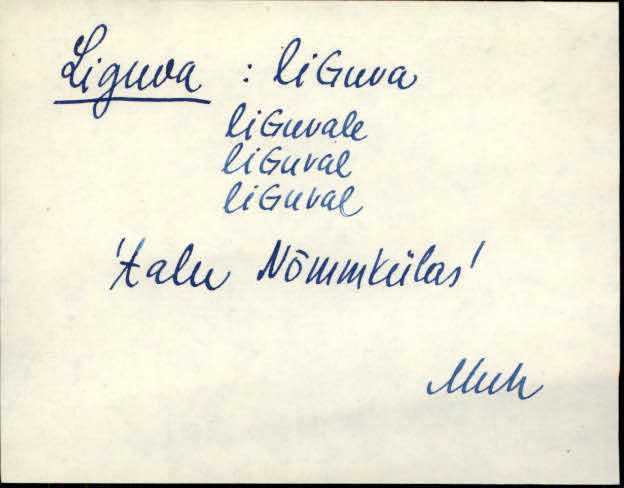 Liguva : liGuva
liGuvale
liGuval
liGuval
'talu Nõmmkülas'
Muh